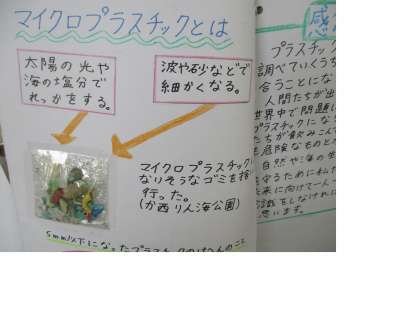 マイクロプラスチックとは
太陽の光や
海の塩分で
れっかをする。
波や砂などで
細かくなる。
マイクロプラスチックに
なりそうなゴミを捨
行った。
(かさい りん海公園)
5mm以下になったプラスチックの
感
プラスチック
調べていくうち
合うことにな
人間たちが出
世界中で問題
プラスチックにな
たちが飲みこん
も危険なものと
自然や海の生
守るために私た
未来に向けて一人
認識をしなければ
思います。